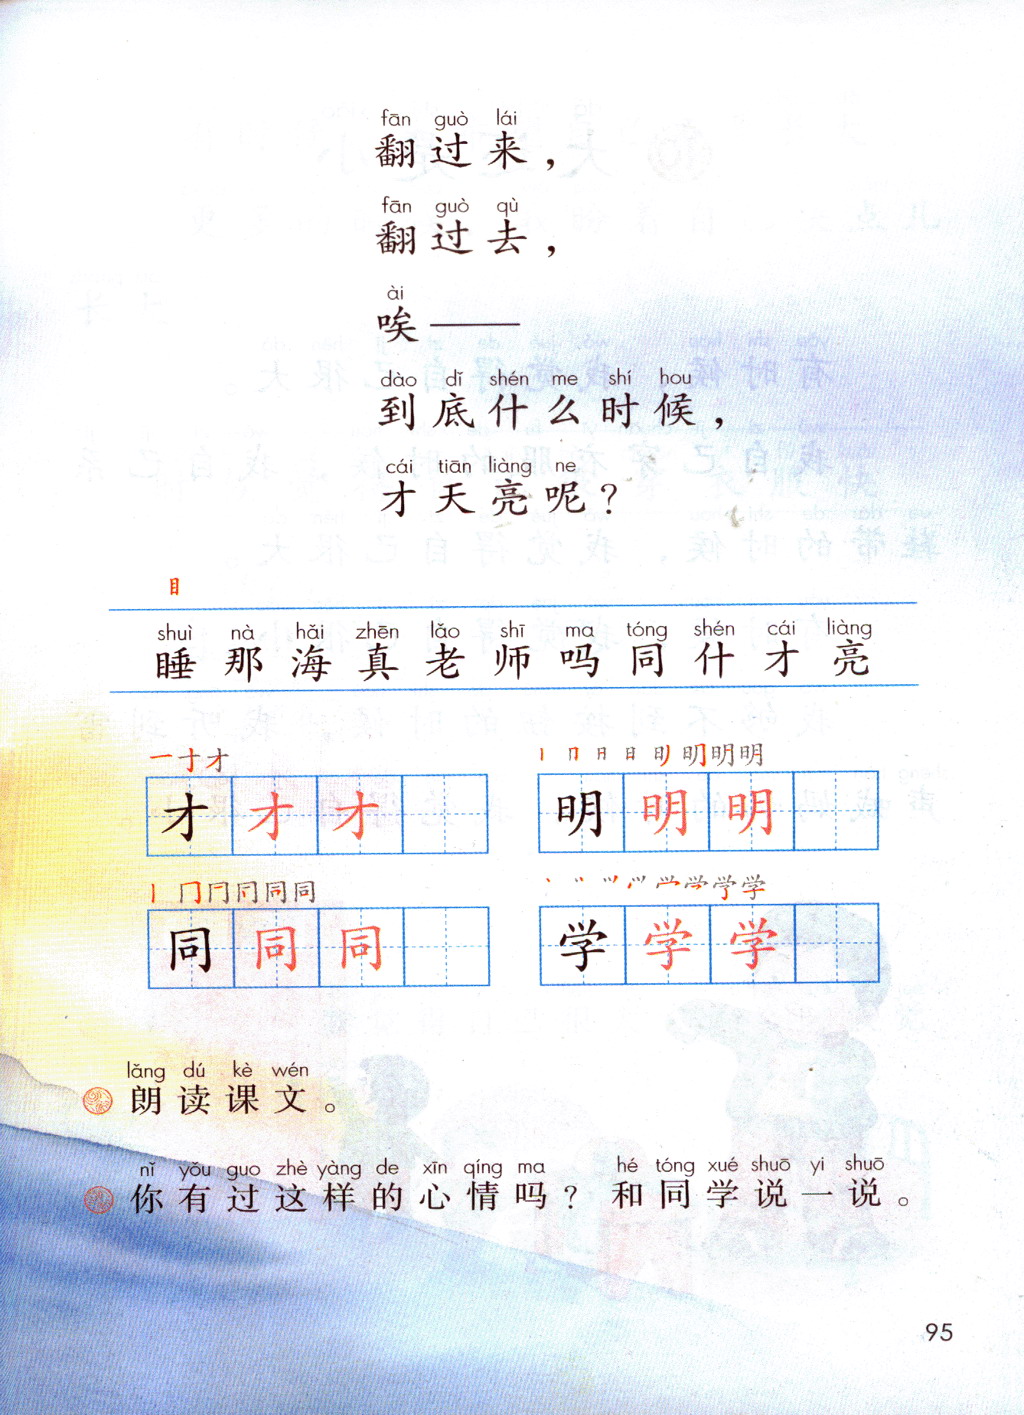 fān guò lái
翻过来，
fān guò qù
翻过去，
ài
唉——
dào dǐ shén me shí hou
到底什么时候，
cái tiān liàng ne
才天亮呢？
目
shuì nà hǎi zhēn lǎo shī ma tóng shén cái liàng
睡 那 海 真 老 师 吗 同 什 才 亮
一 十 才
才 才 才
丨 冂 日 日 明 明 明 明
明 明 明
丨 冂 冂 同 同 同
同 同 同
学 学 学
lǎng dú kè wén
朗读课文。
nǐ yǒu guo zhè yàng de xīn qíng ma hé tóng xué shuō yi shuō
你有过这样的心情吗？和同学说一说。
95